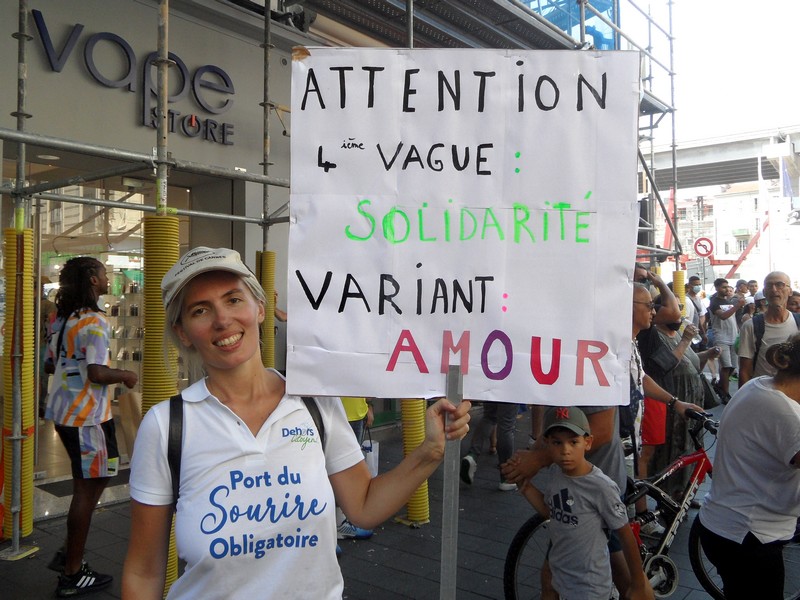 vape
STORE
ATTENTION
4ième VAGUE :
SOLIDARITÉ
VARIANT :
AMOUR
Dehors
citoyen
Port du
Sourire
Obligatoire
adidas